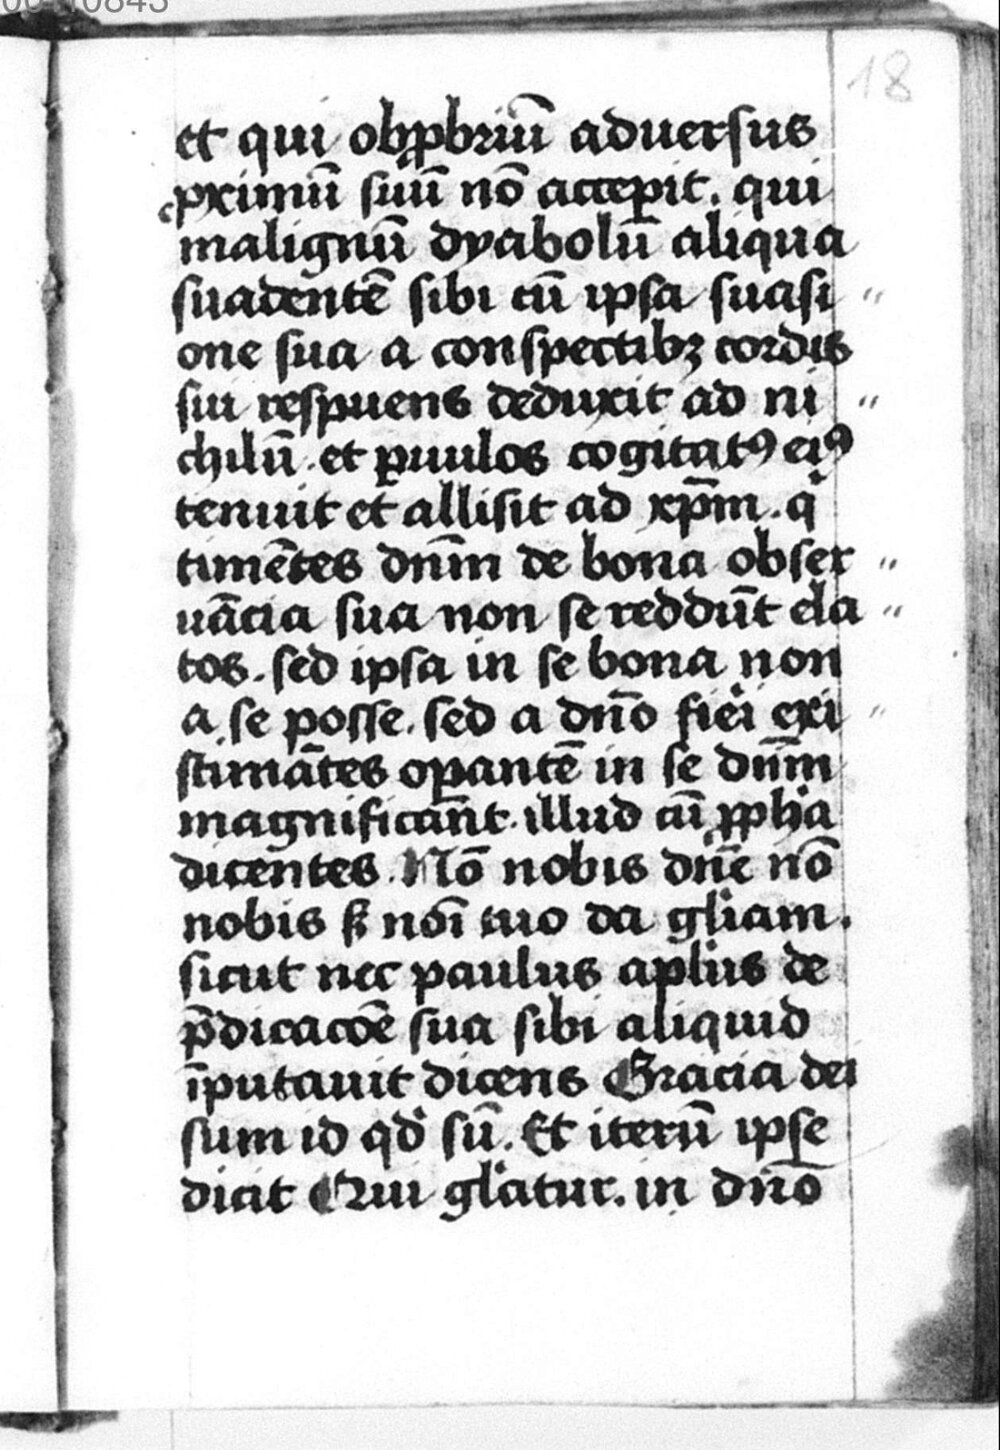 18
et qui obꝓbriū aduersus
ꝓximū suū nō accepit. qui
malignū dyabolū aliqua
suadentē sibi cū ipsa suasi
one sua a conspectibꝫ cordis
sui respuens deduxit ad ni
chilū. et ꝑuulos cogitatꝰ eiꝰ
tenuit et allisit ad xp̄m. qͥ
timētes dn̄m de bona obser
uācia sua non se reddūt ela
tos. sed ipsa in se bona non
a se posse. sed a dn̄o fieri exi
stimātes oꝑantē in se dn̄m
magnificant̄. illud cū ꝓph̄a
dicentes. Nō nobis dn̄e nō
nobis sꝫ nōi tuo da gl̄iam.
sicut nec paulus apl̄us de
p̄dicacōe sua sibi aliquid
īputauit dicens Gracia dei
sum id qd̄ sū. Et iterū ipse
dicit Qui gl̄atur. in dn̄o